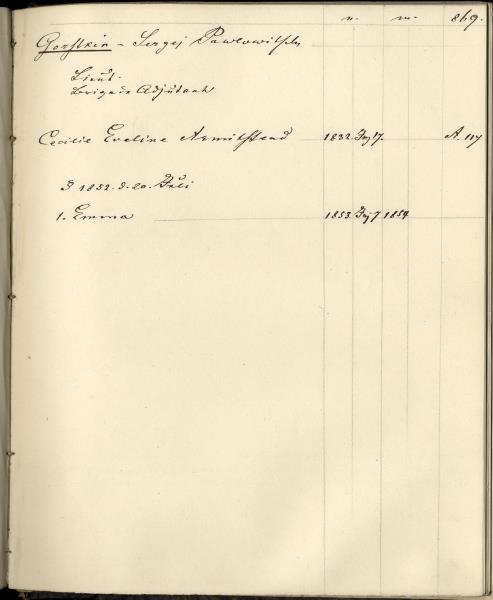 n. m. 869.
Gorstkin - Sergej Pawlowitsch
Lieut.
Brigade Adjutant
Cecilie Eveline Armitstead 1832. 17. A. 117
1852. d. 20. Juli
1. Emma 1853 7 1854